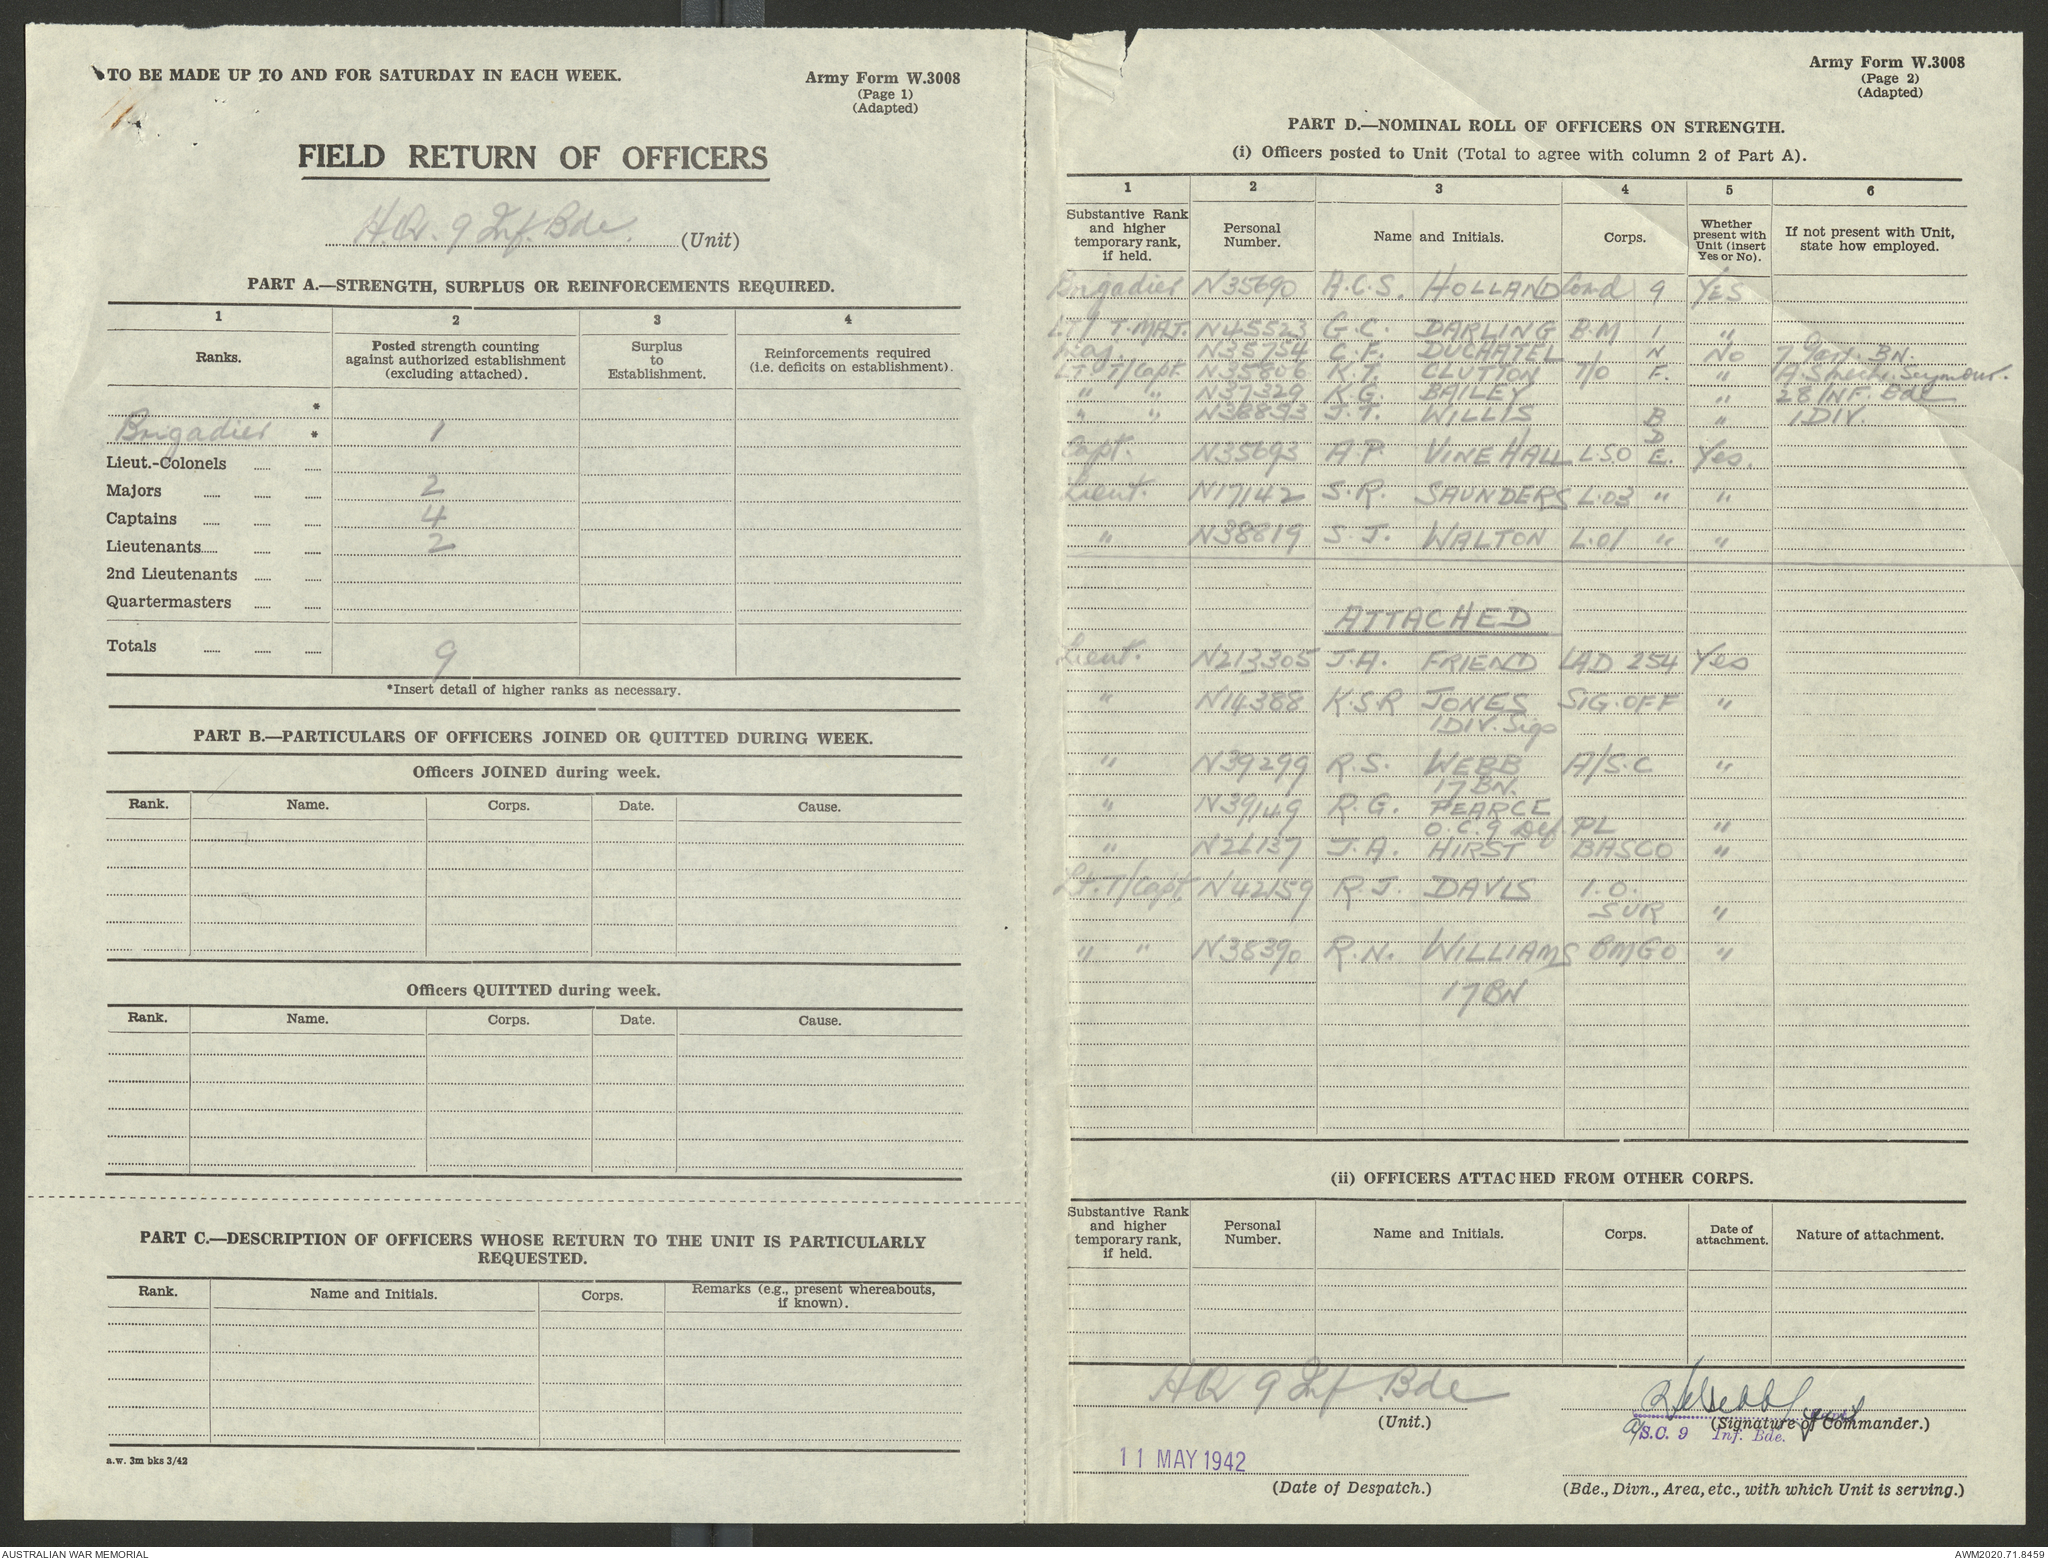 TO BE MADE UP TO AND FOR SATURDAY IN EACH WEEK.
Army Form W.3008
(Page 1)
(Adapted)
FIELD RETURN OF OFFICERS
H.Q. 9 Inf. Bde. (Unit)
PART A.—STRENGTH, SURPLUS OR REINFORCEMENTS REQUIRED.
1 2 3 4
Ranks. Posted strength counting against authorized establishment (excluding attached). Surplus to Establishment. Reinforcements required (i.e. deficits on establishment).
*
Brigadier * 1
Lieut.-Colonels
Majors 2
Captains 4
Lieutenants 2
2nd Lieutenants
Quartermasters
Totals 9
*Insert detail of higher ranks as necessary.
PART B.—PARTICULARS OF OFFICERS JOINED OR QUITTED DURING WEEK.
Officers JOINED during week.
Rank. Name. Corps. Date. Cause.
Officers QUITTED during week.
Rank. Name. Corps. Date. Cause.
PART C.—DESCRIPTION OF OFFICERS WHOSE RETURN TO THE UNIT IS PARTICULARLY
REQUESTED.
Rank. Name and Initials. Corps. Remarks (e.g., present whereabouts, if known).
a.w. 3m bks 3/42
Army Form W.3008
(Page 2)
(Adapted)
PART D.—NOMINAL ROLL OF OFFICERS ON STRENGTH.
(i) Officers posted to Unit (Total to agree with column 2 of Part A).
1 2 3 4 5 6
Substantive Rank and higher temporary rank, if held. Personal Number. Name and Initials. Corps. Whether present with Unit (insert Yes or No). If not present with Unit, state how employed.
Brigadier N35690 A.C.S. HOLLAND Comd 9 YES
Lt/T.MAJ. N45523 G.C. DARLING B.M 1 "
Maj. N35754 C.F. DUCHATEL N No 7 Garr. BN.
Lt. T/Capt. N35806 K.T. CLUTTON T/O F. " Seymour.
" " N37329 K.G. BAILEY " 28 INF. Bde
" " N38893 J.T. WILLIS B " 1 DIV.
D
Capt. N35693 A.P. VINE HALL L.S.O E. Yes.
Lieut. N17142 S.R. SAUNDERS L.O3 " "
" N38619 S.J. WALTON L.O1 " "
ATTACHED
Lieut. N213305 J.A. FRIEND LAD 254 Yes
" N14388 K.S.R JONES SIG.OFF "
1 DIV. Sigs
" N39299 R.S. WEBB A/S.C "
17 BN.
" N39149 R.G. PEARCE
O.C. 9 Def PL "
" N26137 J.A. HIRST BASCO "
Lt. T/Capt. N42159 R.J. DAVIS I.O.
SUR "
" " N38390 R.N. WILLIAMS BMGO "
17 BN
(ii) OFFICERS ATTACHED FROM OTHER CORPS.
Substantive Rank and higher temporary rank, if held. Personal Number. Name and Initials. Corps. Date of attachment. Nature of attachment.
HQ 9 Inf Bde
(Unit.) (Signature of Commander.)
a/S.C. 9 Inf. Bde.
11 MAY 1942
(Date of Despatch.) (Bde., Divn., Area, etc., with which Unit is serving.)
AUSTRALIAN WAR MEMORIAL AWM2020.71.8459